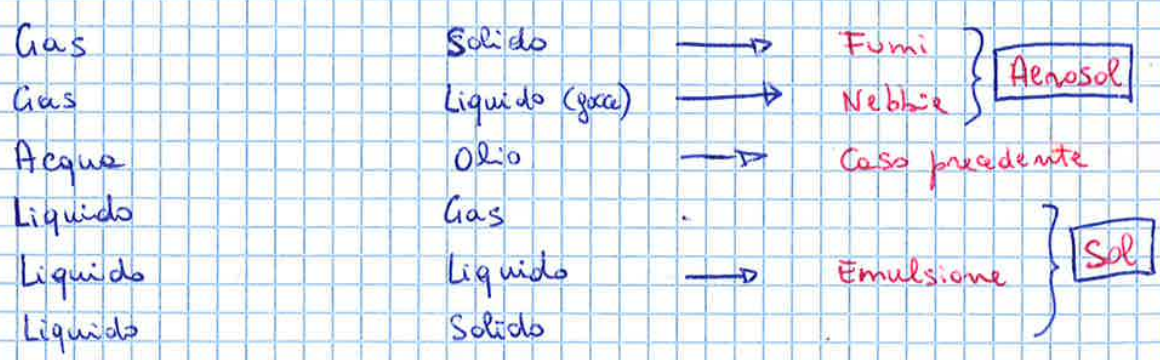 Gas Solido → Fumi
Gas Liquido (gocce) → Nebbie } Aerosol
Acqua Olio → Caso precedente
Liquido Gas
Liquido Liquido → Emulsione } Sol
Liquido Solido